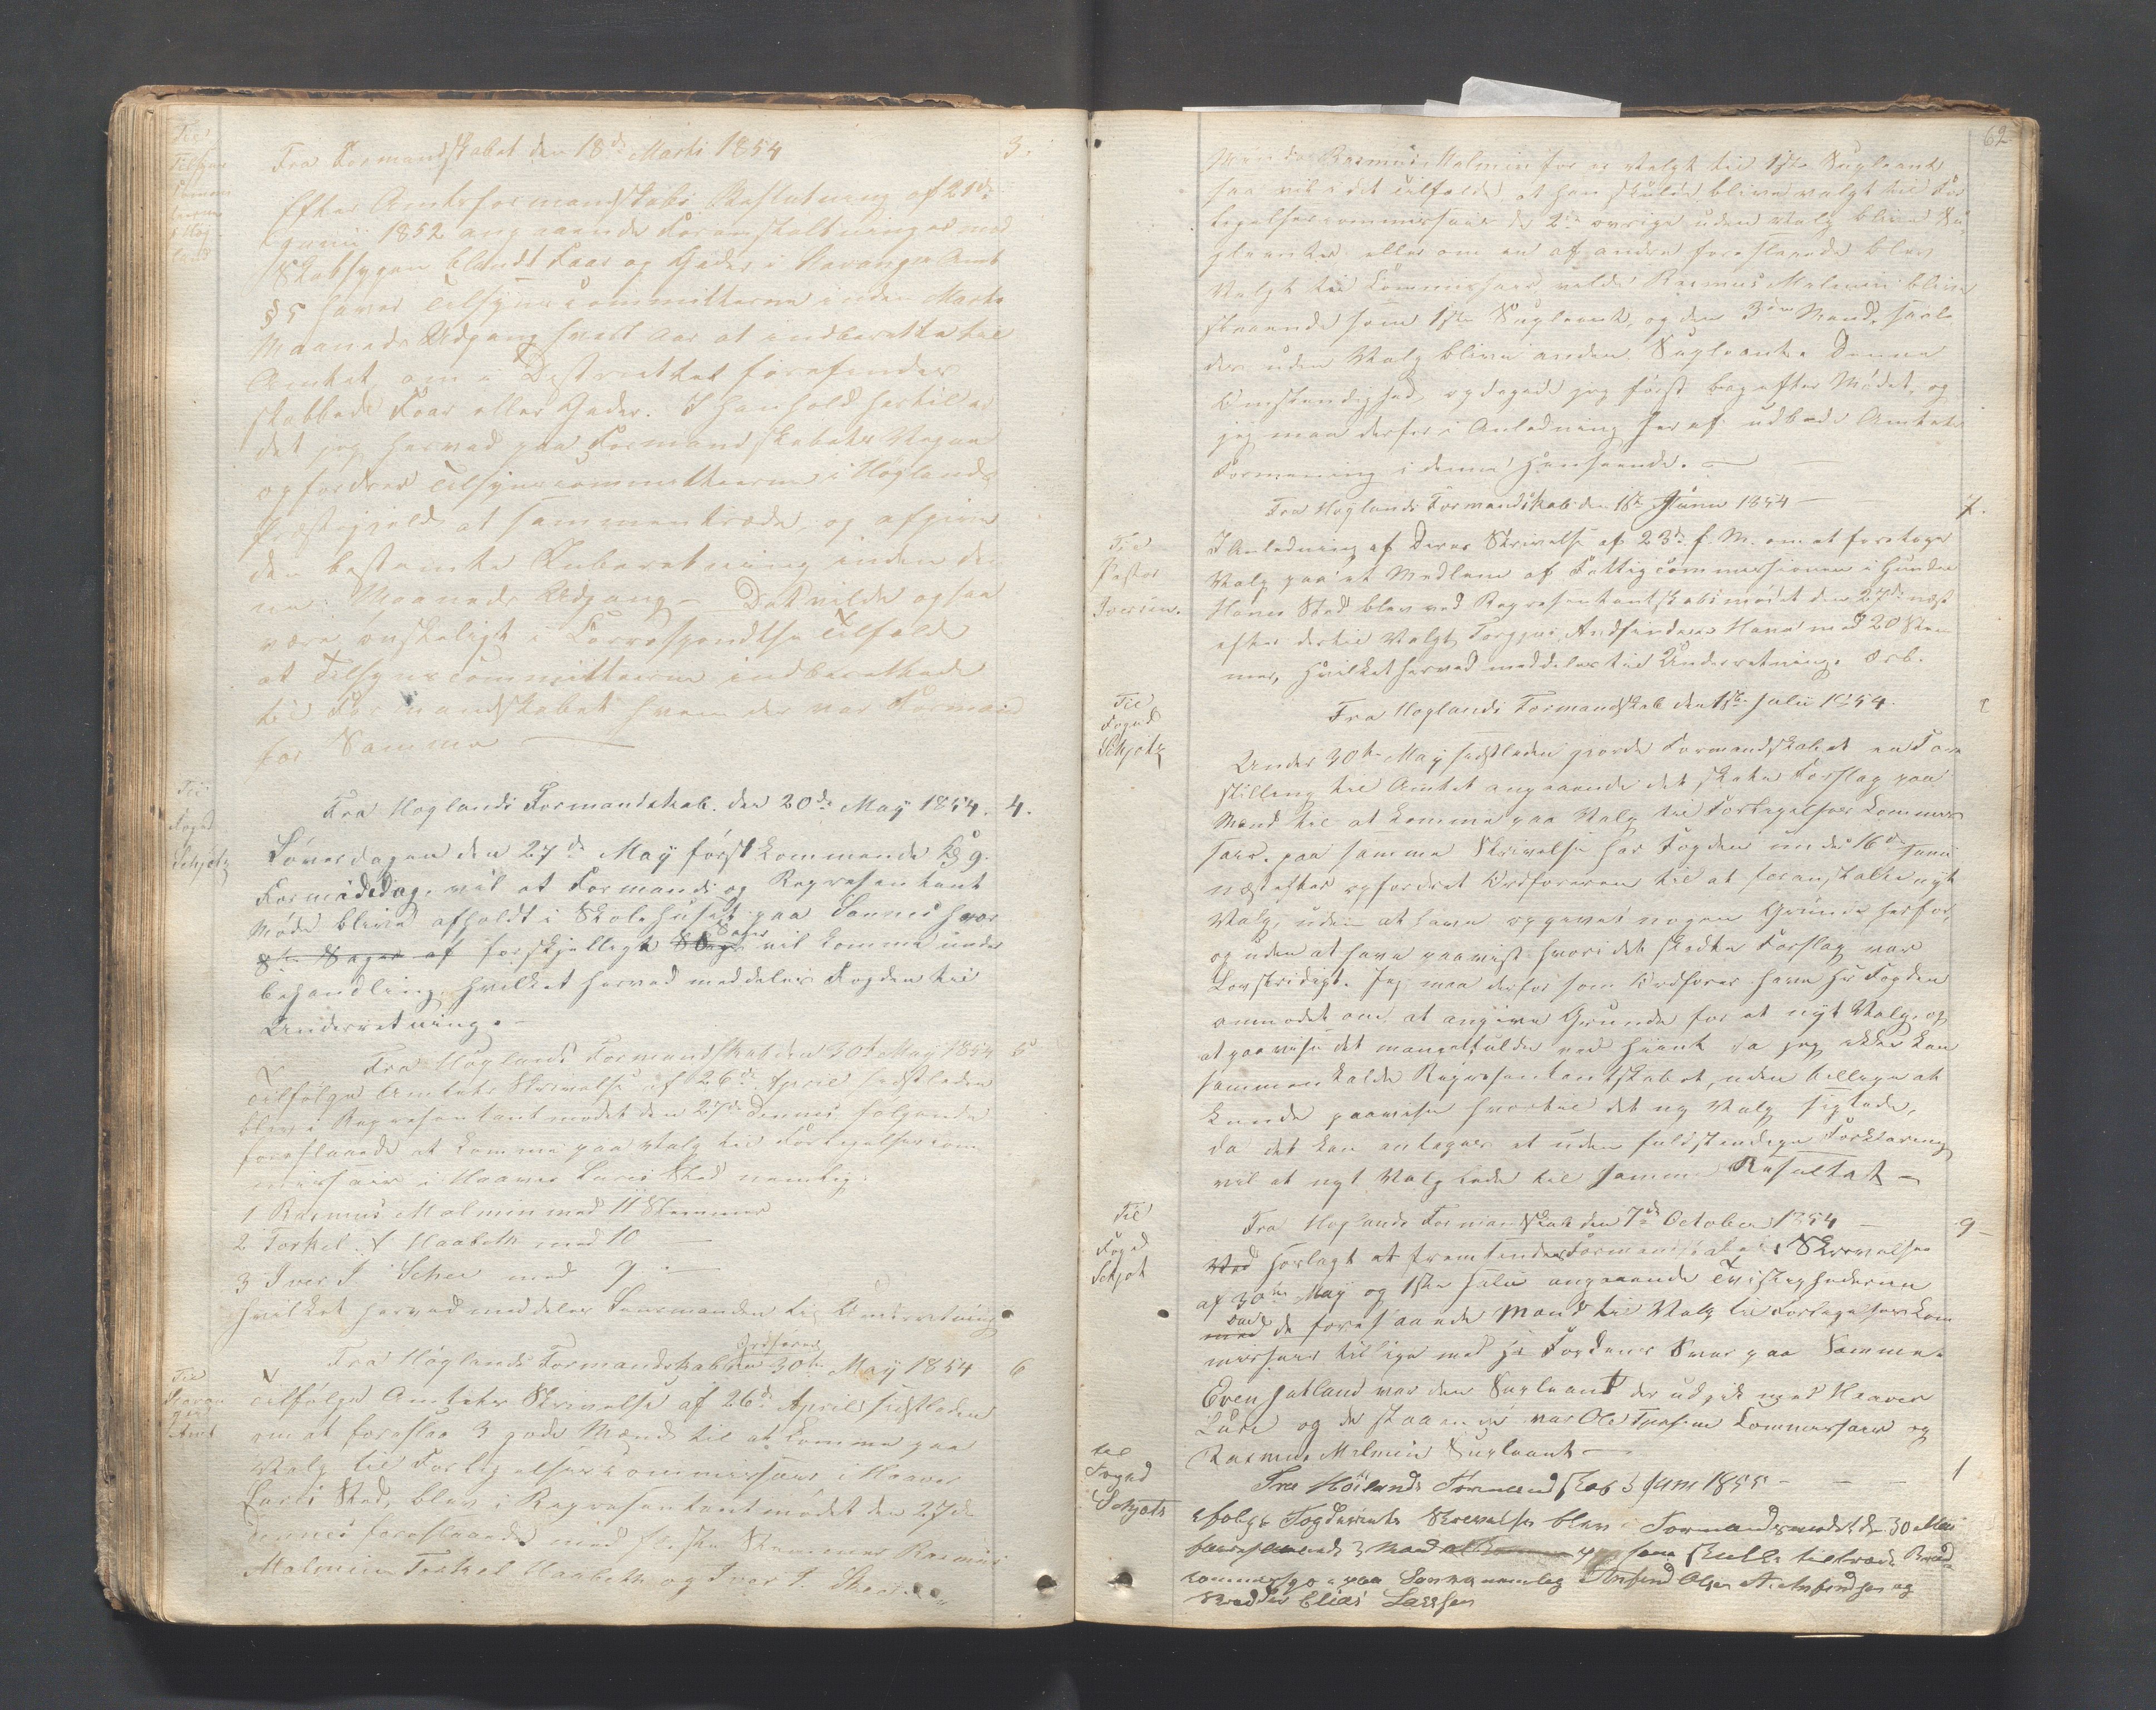 Til
Tilsyns
Commi
teerne
i Hög
land
Fra Formandskabet den 18de Marti 1854
3.
Efter Amtsformandskabs Beslutning af 21de
Junii 1852 angaaende Foranstaltninger mod
Skabsygen blandt Faar og Geder i Stavanger Amt
§ 5 haver Tilsynscommitteerne inden Marts
Maaneds Udgang hvert Aar at indberette til
Amtet, om i Destrecktet forefindes
skabbede Faar eller Geder. I Henhold hertil er
det jeg herved paa Formandskabets Vegne
opfordrer Tilsynscommitteerne i Höglands
Præstegjeld at sammentræde og afgive
den bestemte Inberetning inden den
ne Maaneds Udgang – Det vilde ogsaa
være önskeligt i Correspondtse Tilfælde
at Tilsynscommitteerne indberettede
til Formandskabet hvem der var Formand
for Samme
Til
Foged
Schjötz
Fra Höglands Formandskab. den 20de May 1854. 4.
Löverdagen den 27de May först kommende Kl 9
Formiddag, vil et Formands og Representant
Möde blive afholdt i Skolehuset paa Sannes hvor
Sager af forskjelligt Slags Sager vil komme under
behandling, hvilket herved meddeles Fogden til
Underretning. –
Fra Höglands Formandskab den 30te May 1854 5
Tilfölge Amtets Skrivelse af 26de April sidstleden
blev i Representantmödet den 27de dennes fölgende
foreslaaede at komme paa Valg til Forligelsescom
missair i Haaver Lures Sted nemlig:
1 Rasmus Malmin med 11 Stemmer
2 Torkel Haabeth med 10 —
3 Iver T. Schei med 9 —
hvilket herved meddeles Lensmanden til Underretning
Til
Stavan
gers
Amt
Ordförer
Fra Höglands Formandskab den 30te May 1854 6
Tilfölge Amtets Skrivelse af 26de April sidstleden
om at foreslaa 3 gode Mænd til at komme paa
Valg til Forligelsescommissair i Haaver
Lures Sted, blev i Representantmödet den 27de
dennes foreslaaede med fleste Stemmer Rasmus
Malmin Torkel Haabeth og Iver T. Skei.
62
Rasmus Malmin for er valgt til 1ste Supleant
saa vil i det Tilfælde, at han skulde blive valgt til For
ligelsescommissair de 2de övrige uden Valg blive Su
pleanter eller om en af andre foreslaaede blev
Valgt til Commissair vilde Rasmus Malmin blive
staaende som 1ste Supleant, og den 3die Mand saale
des uden Valg blive anden Supleant. Denne
Omstendighed opdagede jeg först bag efter Mödet, og
jeg maa derfor i Anledning heraf udbede Amtets
Formening i denne Henseende. —
Fra Höglands Formandskab den 1ste Junii 1854 —
7.
Til
Pastor
Iversen.
I Anledning af Deres Skrivelse af 23de f. M. om at foretage
Valg paa et Medlem af Fattigcommissionen i Gunder
Hanes Sted blev ved Representantskabsmödet den 27de næst
efter dertil Valgt Torger Andfindsen Hane med 20 Stem
mer, hvilket herved meddeles til Underretning. Ærb.
Til
Foged
Schjötz
Fra Höglands Formandskab den 1ste Julii 1854.
8
Under 30te May sidstleden gjorde Formandskabet en Fore
stilling til Amtet angaaende det skete Forslag paa
Mænd til at komme paa Valg til Forligelses Commis
sair. paa samme Skrivelse har Fogden under 16de Junii
næstefter opfordret Ordföreren til at foranstalte nyt
Valg, uden at have opgivet nogen Grunde herfor,
og uden at have paavist hvori det skedte Forslag var
Lovstridigt. Jeg maa derfor som Ordförer have Hr Fogden
anmodet om at angive Grunde for et nyt Valg, og
at paavise det mangelfulde ved hiint da jeg ikke kan
sammenkalde Representantskabet, uden tillige at
kunde paavise hvortil det ny Valg sigtede,
da det kan antages at uden fuldstendige Forklaring
vil et nyt Valg lede til samme Resultat —
Til
Foged
Schjöt
Fra Höglands Formandskab den 7de October 1854 —
9
Ved Forlagt at fremsende Formandskabets Skrivelser
af 30te May og 1ste Julii angaaende Tvistighederne
med de foreslaaede Mænd til Valg til Forligelseskom
missair tilligemed Hr Fogdens Svar paa Samme.
Even Jatland var den Supleant der udgik med Haaver
Lure og de staaende var Ole Commissair og
Rasmus Malmin Supleant —
til
Foged
Schjöts
Fra Höilands Formandskab 3 Juni 1855 —
1
ifölge Fogderiets Skrevelse blev i Formandsmödet d. 30 Mai
foreslaaende 3 Mænd som skulle tiltræde Brand
commission paa Sannes nemleg Anfend Olsen A. Anfendsen og
Skredder Elias Larssen